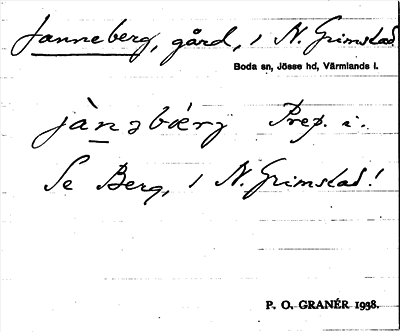 Janneberg, gård, 1 N. Grimstad
Boda sn, Jösse hd, Värmlands l.
jànəbærg Prep. i.
Se Berg, 1 N. Grimstad!
P. O. GRANÉR 1938.